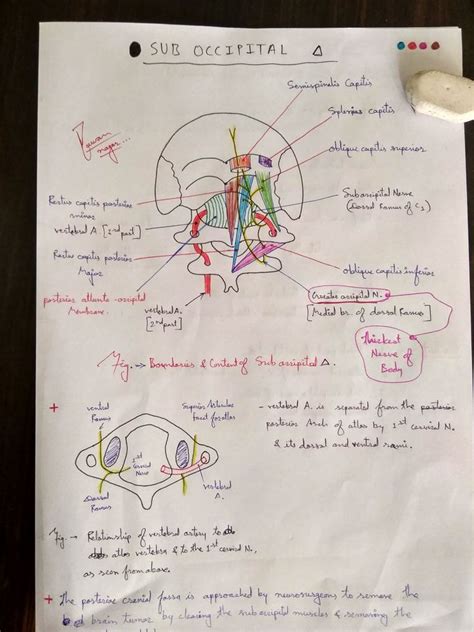 SUB OCCIPITAL Δ
Semispinalis Capitis
Splenius capitis
Oblique capitis superior
Rectus capitis posterior
minor
vertebral A. [3rd part]
Suboccipital Nerve
(Dorsal Ramus of C1)
Rectus capitis posterior
Major
Oblique capitis inferior
posterior atlanto-occipital
Membrane.
vertebral A.
[2nd part]
Greater occipital N.
[Medial br. of dorsal Ramus]
Thickest
Nerve of
Body
Fig. → Boundaries & Content of Suboccipital Δ.
+ ventral
Ramus
Superior Articular
facet for atlas
1st
Cervical
Nerve
Dorsal
Ramus
vertebral
A.
- vertebral A. is separated from the posterior
posterior Arch of atlas by 1st cervical N.
& its dorsal and ventral rami.
Fig. → Relationship of vertebral artery to
atlas vertebra & to the 1st cervical N.,
as seen from above.
+ The posterior cranial fossa is approached by neurosurgeons to remove the
brain tumor by clearing the suboccipital muscles & removing the